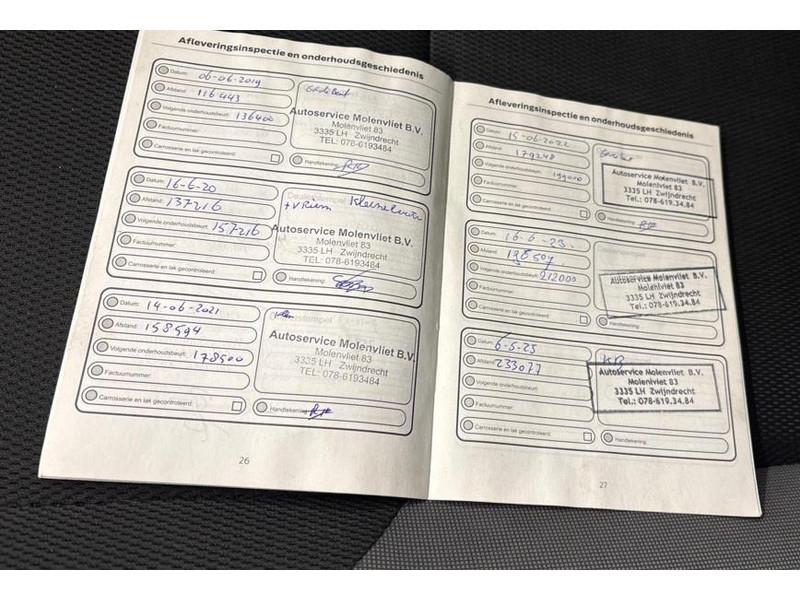 Afleveringsinspectie en onderhoudsgeschiedenis
Datum: 06-06-2019
Afstand: 116443
Volgende onderhoudsbeurt: 136400
Factuurnummer:
Carrosserie en lak gecontroleerd:
Grote Beurt
Autoservice Molenvliet B.V.
Molenvliet 83
3335 LH Zwijndrecht
TEL: 078-6193484
Handtekening:
Datum: 16-6-20
Afstand: 137216
Volgende onderhoudsbeurt: 157216
Factuurnummer:
Carrosserie en lak gecontroleerd:
Kleine Beurt
+ V Riem
Autoservice Molenvliet B.V.
Molenvliet 83
3335 LH Zwijndrecht
TEL: 078-6193484
Handtekening:
Datum: 14-06-2021
Afstand: 158594
Volgende onderhoudsbeurt: 178500
Factuurnummer:
Carrosserie en lak gecontroleerd:
Autoservice Molenvliet B.V.
Molenvliet 83
3335 LH Zwijndrecht
TEL: 078-6193484
Handtekening:
26
Afleveringsinspectie en onderhoudsgeschiedenis
Datum: 15-06-2022
Afstand: 179248
Volgende onderhoudsbeurt: 199000
Factuurnummer:
Carrosserie en lak gecontroleerd:
Autoservice Molenvliet B.V.
Molenvliet 83
3335 LH Zwijndrecht
Tel.: 078-619.34.84
Handtekening:
Datum: 16-6-23.
Afstand:
Volgende onderhoudsbeurt: 212000
Factuurnummer:
Carrosserie en lak gecontroleerd:
Autoservice Molenvliet B.V.
Molenvliet 83
3335 LH Zwijndrecht
Tel.: 078-619.34.84
Handtekening:
Datum: 6-5-25
Afstand: 233077
Volgende onderhoudsbeurt:
Factuurnummer:
Carrosserie en lak gecontroleerd:
KB
Autoservice Molenvliet B.V.
Molenvliet 83
3335 LH Zwijndrecht
Tel.: 078-619.34.84
Handtekening:
27